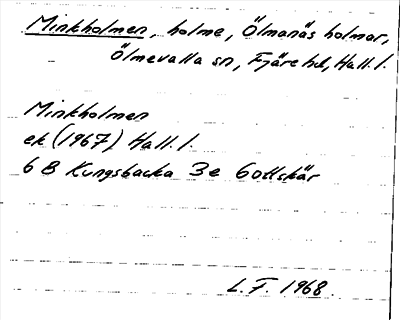 Minkholmen, holme, Ölmanäs holmar,
Ölmevalla sn, Fjäre hd, Hall. l.
Minkholmen
ek (1967) Hall. l.
6 B Kungsbacka 3e Gottskär
L.F. 1968.